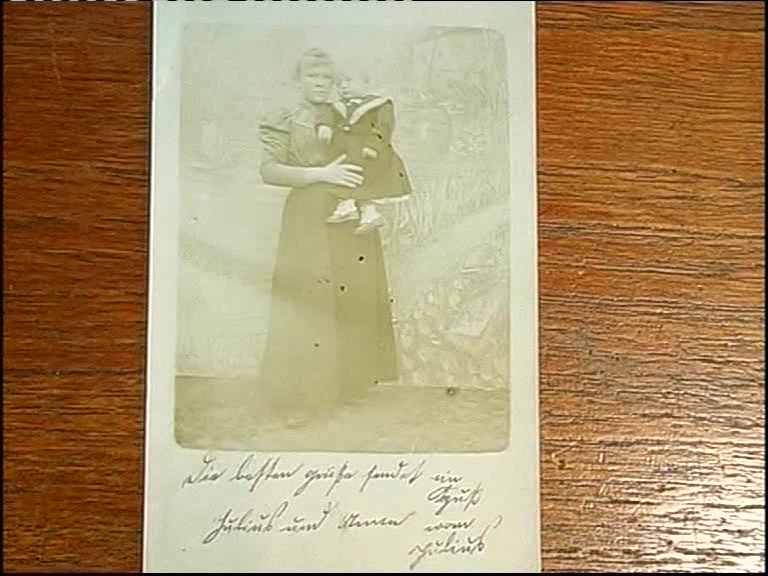 Die besten grüße sendet ein
Kuß
Julius und Anna von
Julius